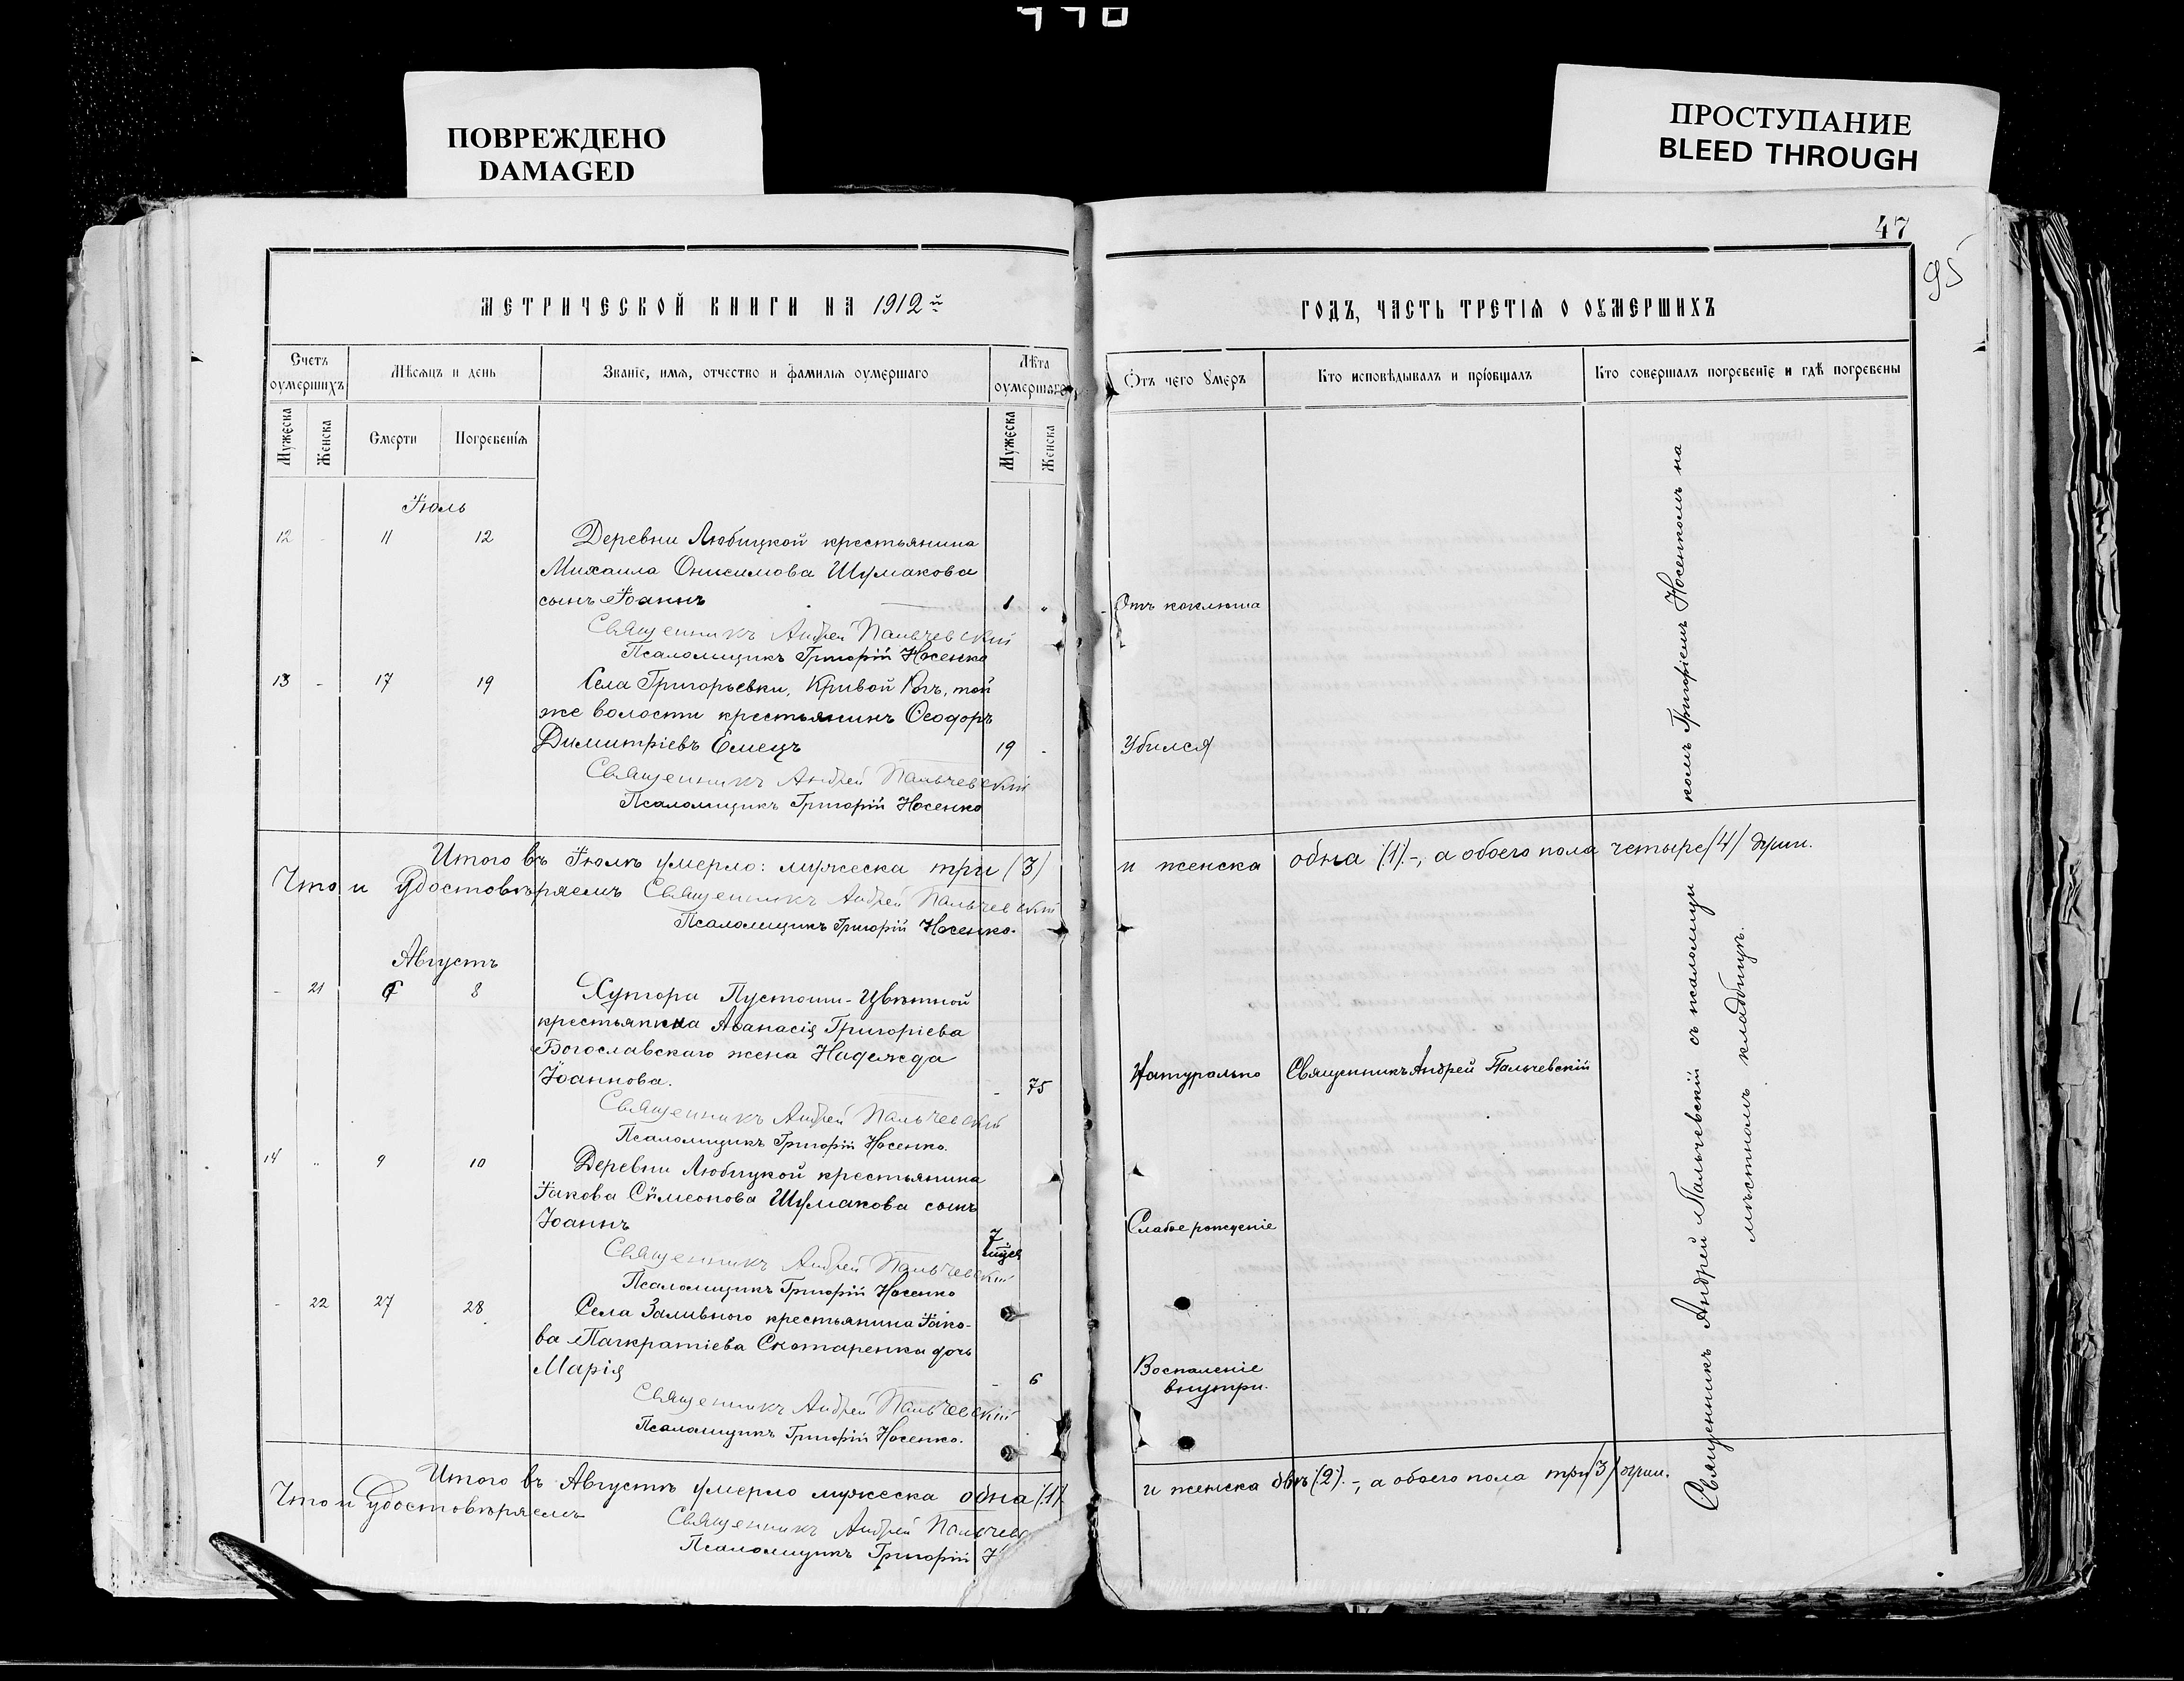 ПОВРЕЖДЕНО
DAMAGED
ПРОСТУПАНИЕ
BLEED THROUGH
47
95
МЕТРИЧЕСКОЙ КНИГИ НА 1912й
Счетъ оумершихъ
Мѣсяцъ и день
Званіе, имя, отчество и фамилія оумершаго
Лѣта оумершаго
Мужеска
Женска
Смерти
Погребенія
Мужеска
Женска
Іюль
12 - 11 12 Деревни Любицкой крестьянина
Михаила Онисимова Шумакова
сынъ Іоаннъ 1 "
Священникъ Андрей Пальчевскій
Псаломщикъ Григорій Носенко
13 - 17 19 Села Григорьевки, Кривой Рогъ, той
же волости крестьянинъ Ѳеодоръ
Димитріевъ Емецъ 19 -
Священникъ Андрей Пальчевскій
Псаломщикъ Григорій Носенко
Итого въ Іюлѣ умерло: мужеска три (3)
Что и удостовѣряемъ Священникъ Андрей Пальчевскій
Псаломщикъ Григорій Носенко.
Августъ
- 21 8 Хутора Пустоши-Цвѣтной
крестьянина Аѳанасія Григоріева
Богославскаго жена Надежда
Іоаннова. - 75
Священникъ Андрей Пальчевскій
Псаломщикъ Григорій Носенко.
14 " 9 10 Деревни Любицкой крестьянина
Іакова Симеонова Шумакова сынъ
Іоаннъ 7
Священникъ Андрей Пальчевскій
Псаломщикъ Григорій Носенко
- 22 27 28 Села Заливного крестьянина Іако-
ва Панкратіева Скотаренка дочь
Марія - 6
Священникъ Андрей Пальчевскій
Псаломщикъ Григорій Носенко.
Итого въ Августѣ умерло мужеска одна (1)
Что и удостовѣряемъ
Священникъ Андрей Пальчев
Псаломщикъ Григорій Н
ГОДЪ, ЧАСТЬ ТРЕТІЯ О ОУМЕРШИХЪ
Отъ чего умеръ
Кто исповѣдывалъ и пріобщалъ
Кто совершалъ погребеніе и гдѣ погребены
Отъ коклюша
Убился
и женска одна (1).-, а обоего пола четыре (4) души.
Натурально Священникъ Андрей Пальчевскій
Слабое рожденіе
Воспаленіе
внутри.
и женска двѣ (2).-, а обоего пола три (3) души.
Священникъ Андрей Пальчевскій съ псаломщи
комъ Григоріемъ Носенкомъ на
мѣстномъ кладбищѣ.